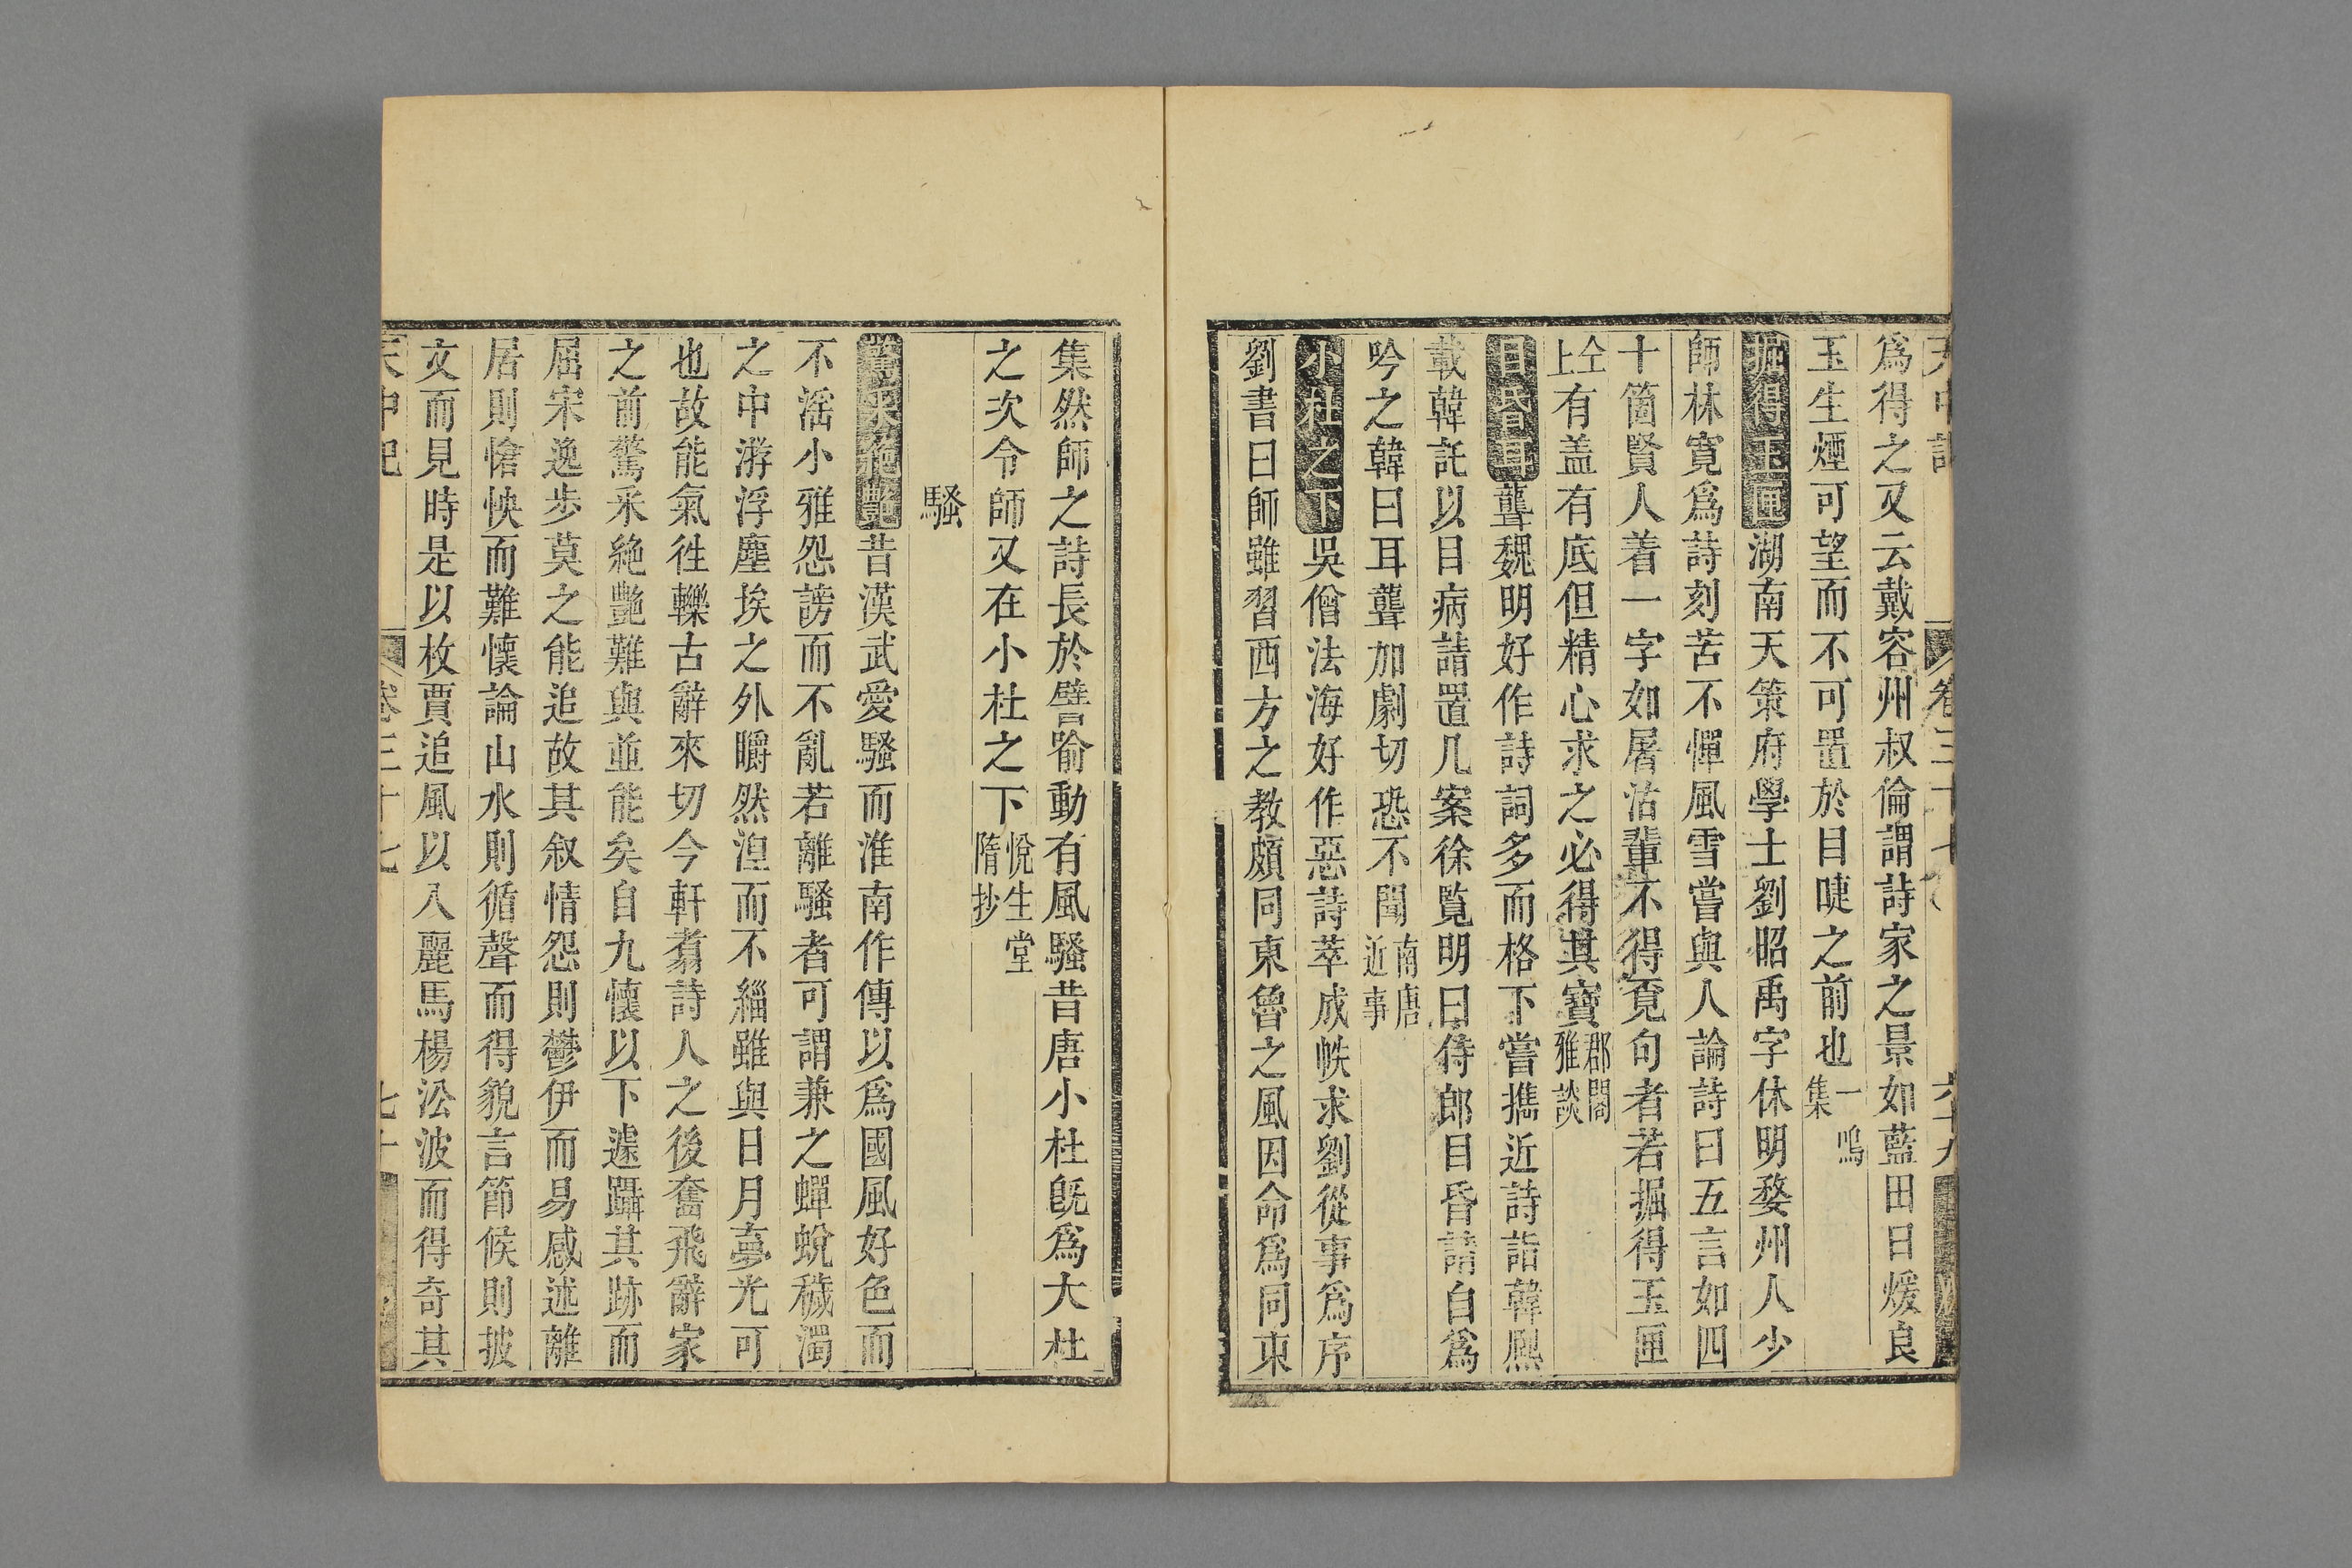 天中記 卷三十七 六十九
爲得之又云戴容州叔倫謂詩家之景如藍田日煖良
玉生煙可望而不可置於目睫之前也一鳴集
掘得玉匣湖南天策府學士劉昭禹字休明婺州人少
師林寛爲詩刻苦不憚風雪嘗與人論詩曰五言如四
十箇賢人着一字如屠沽輩不得覔句者若掘得玉匣
仝上有盖有底但精心求之必得其寶郡閣雅談
目昏耳聾魏明好作詩詞多而格下嘗攜近詩詣韓熙
載韓託以目病請置几案徐覧明曰侍郎目昏請自爲
吟之韓曰耳聾加劇切恐不聞南唐近事
小杜之下吳僧法海好作惡詩萃成帙求劉從事爲序
劉書曰師雖習西方之教頗同東魯之風因命爲同東
集然師之詩長於譬喻動有風騷昔唐小杜既爲大杜
之次令師又在小杜之下悅生堂隋抄
騷
驚采絶艷昔漢武愛騷而淮南作傳以爲國風好色而
不滛小雅怨謗而不亂若離騷者可謂兼之蟬蛻穢濁
之中游浮塵埃之外皭然涅而不緇雖與日月爭光可
也故能氣徃轢古辭來切今軒翥詩人之後奮飛辭家
之前驚采絶艷難與並能矣自九懷以下遽躡其跡而
屈宋逸步莫之能追故其叙情怨則鬱伊而易感述離
居則愴怏而難懷論山水則循聲而得貌言節候則披
文而見時是以枚賈追風以入麗馬楊㳂波而得奇其
天中記 卷三十七 七十